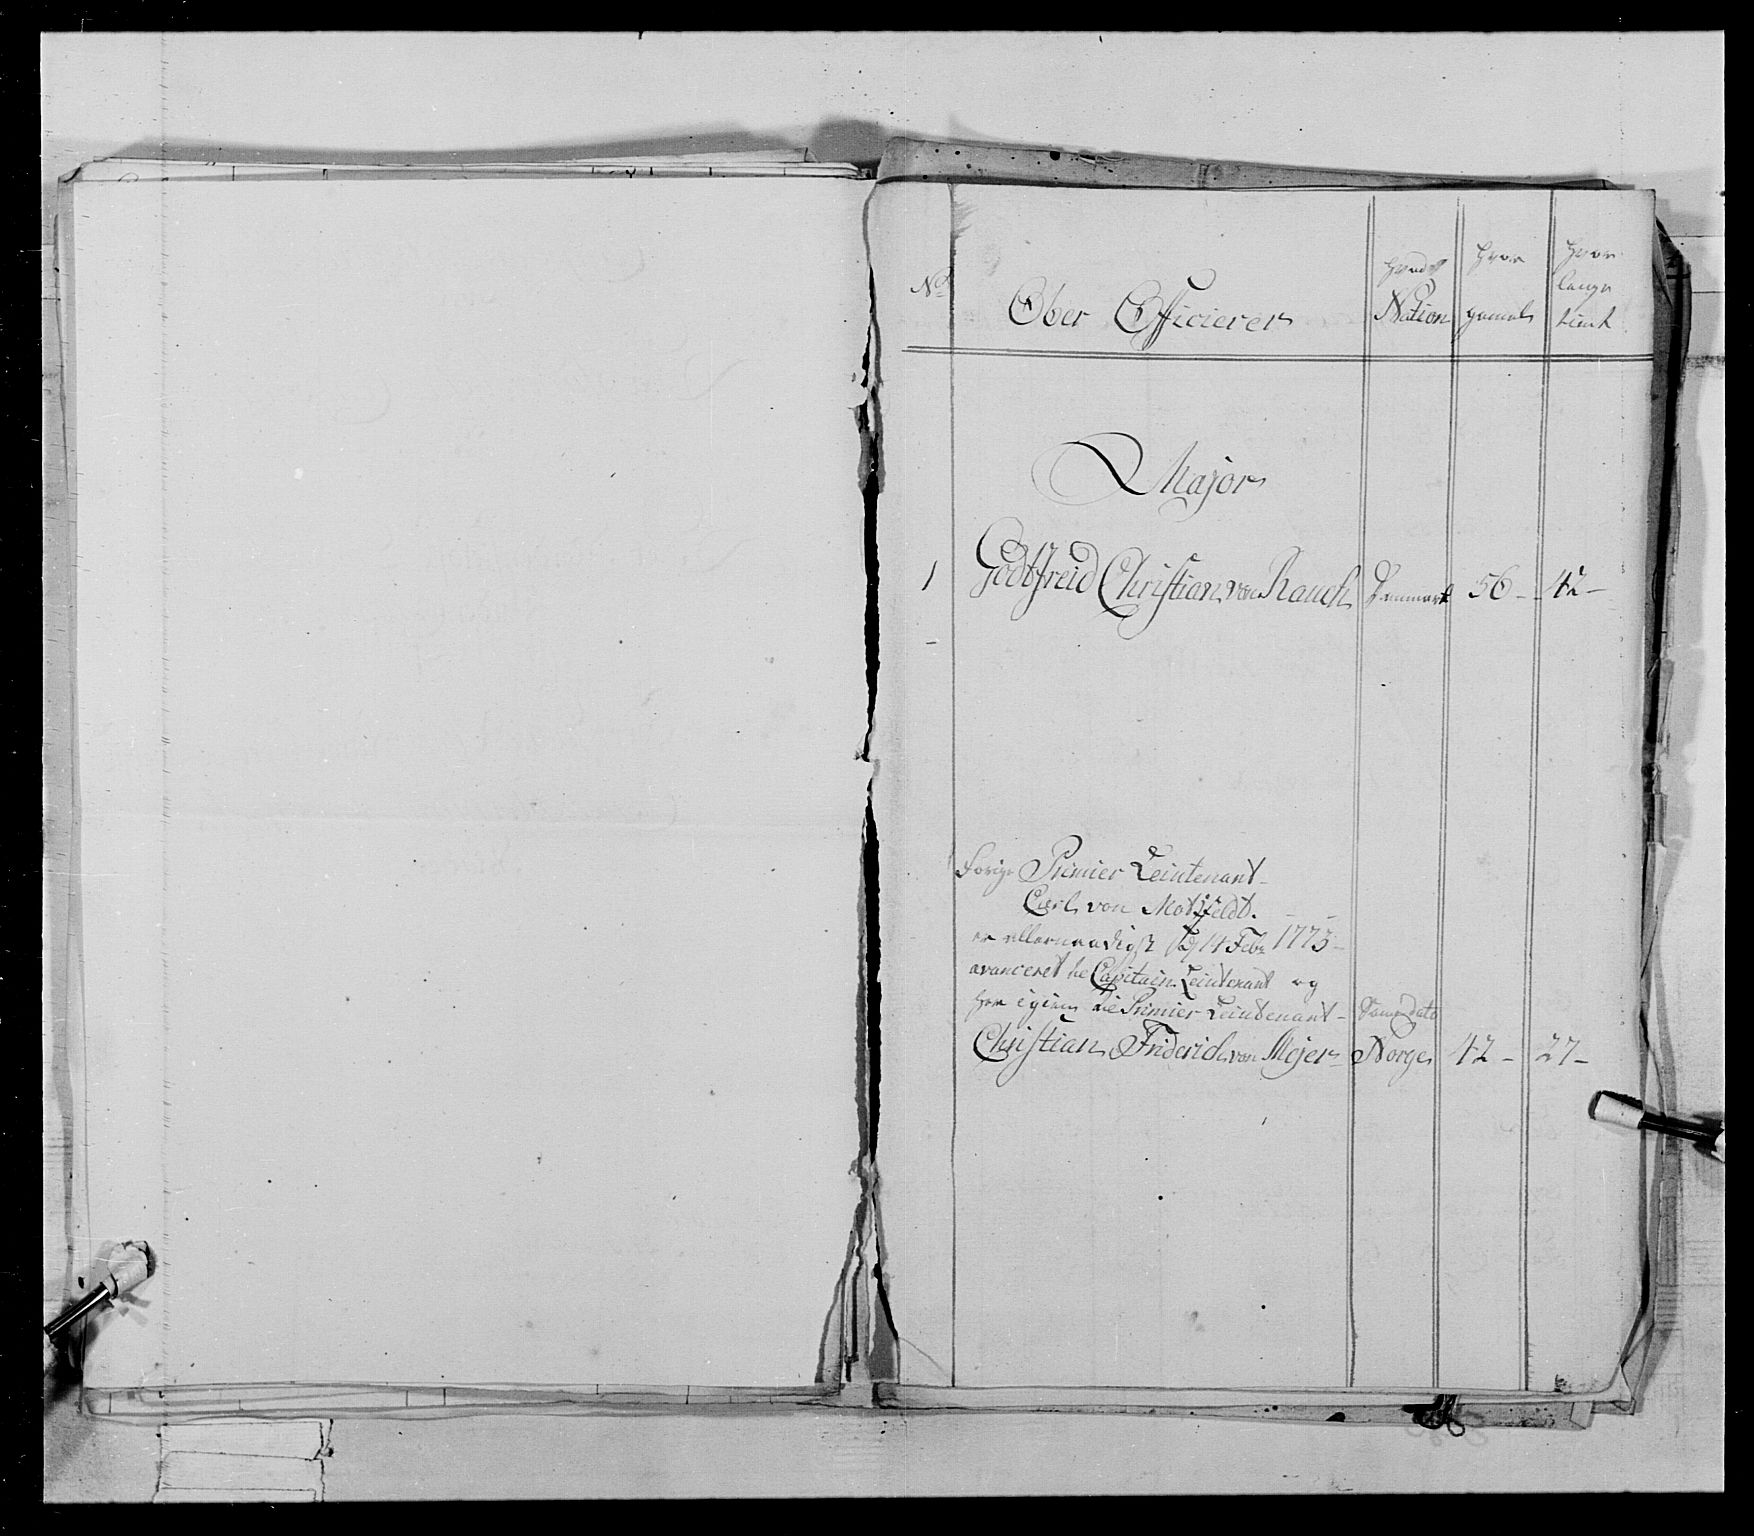 No. Ober Officierer hvad Nation hvor gamel hvor lenge tient
Major
1 Godtfreid Christian von Rauch Danmark 56 - 42 -
Forige Premier Leutenant -
Carl von Motzfeldt. - -
er allernaadigst d 14 Febr 1773 -
avanceret til Capitain Leutenant og
her igien til Premier Leutenant - Samedato
Christian Friderich von Mejer - Norge 42 - 27 -